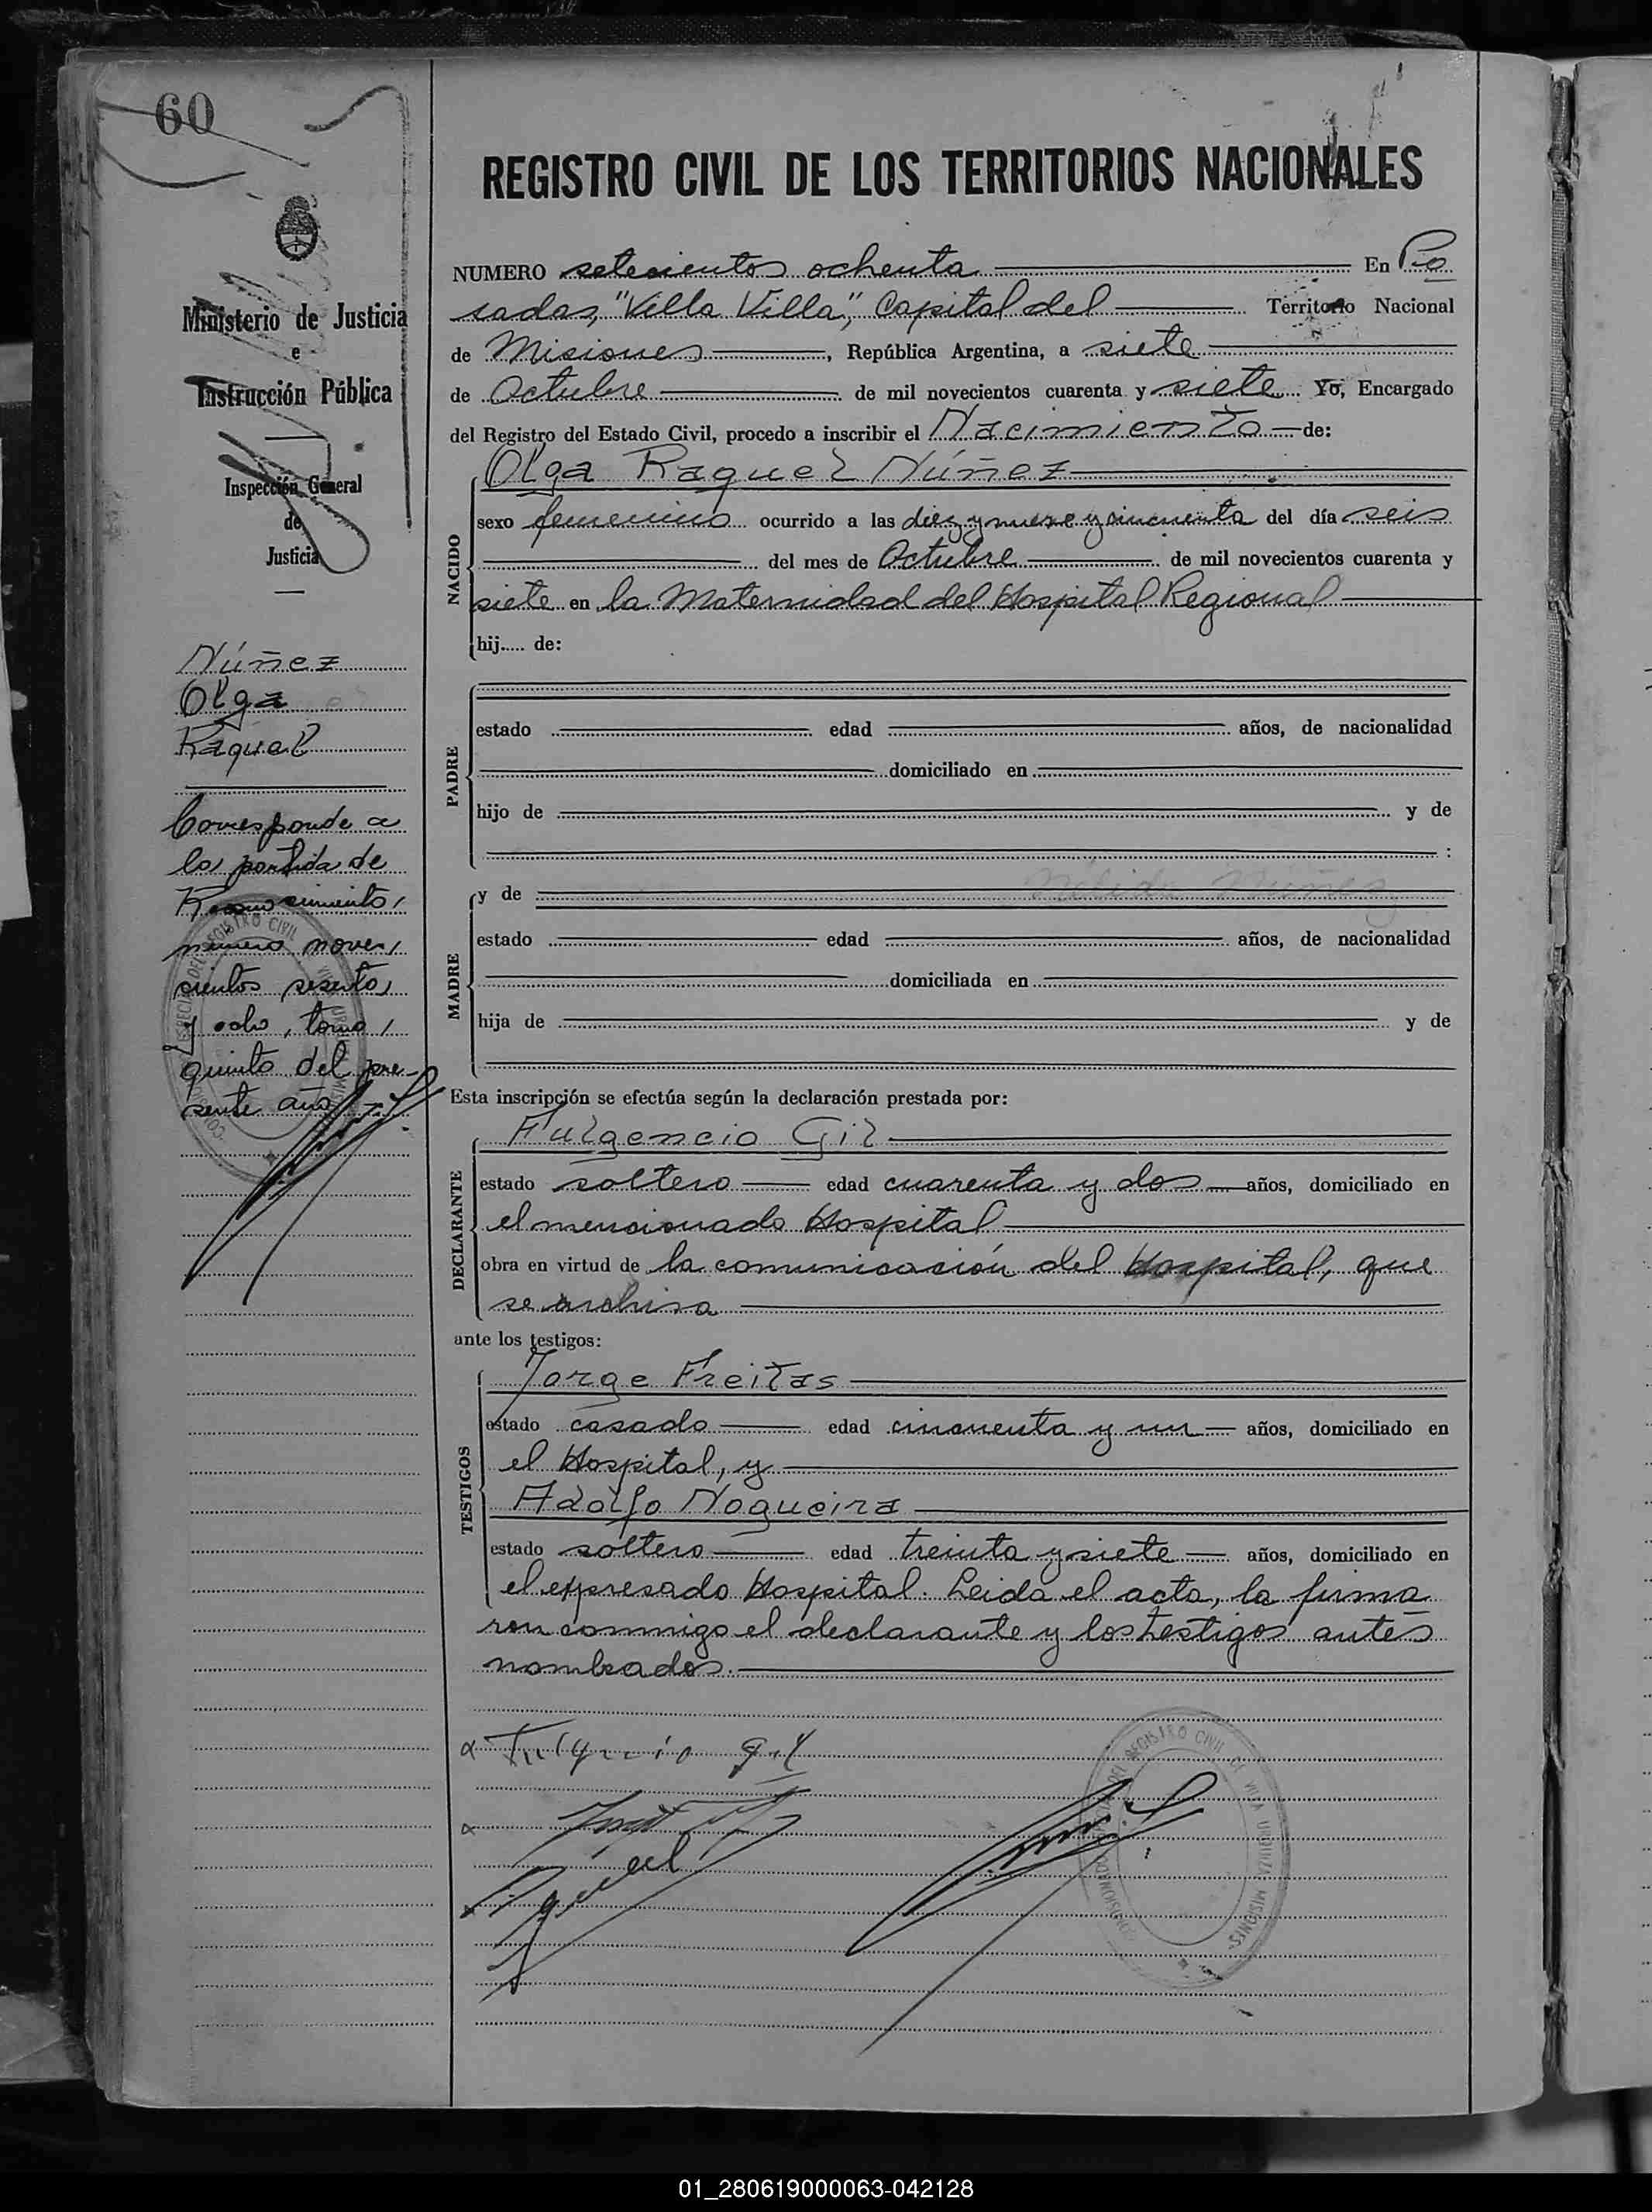 60
REGISTRO CIVIL DE LOS TERRITORIOS NACIONALES
Ministerio de Justicia
e
Instrucción Pública
Inspección General
de
Justicia
Núñez
Olga
Raquel
Corresponde a
la partida de
Reconocimiento,
número nove,
cientos sesenta,
y ocho, tomo,
quinto del pre-
sente año.
NUMERO setecientos ochenta En Po
sadas, "Villa Villa", Capital del Territorio Nacional
de Misiones, República Argentina, a siete
de Octubre de mil novecientos cuarenta y siete Yo, Encargado
del Registro del Estado Civil, procedo a inscribir el Nacimiento de:
NACIDO
Olga Raquel Núñez
sexo femenino ocurrido a las diez y nueve y cincuenta del día seis
del mes de Octubre de mil novecientos cuarenta y
siete en la Maternidad del Hospital Regional
hij..... de:
PADRE
estado edad años, de nacionalidad
domiciliado en
hijo de y de
:
MADRE
y de Nélida Núñez
estado edad años, de nacionalidad
domiciliada en
hija de y de
Esta inscripción se efectúa según la declaración prestada por:
DECLARANTE
Fulgencio Gil
estado soltero edad cuarenta y dos años, domiciliado en
el mencionado Hospital
obra en virtud de la comunicación del Hospital, que
se archiva
ante los testigos:
TESTIGOS
Jorge Freitas
estado casado edad cincuenta y un años, domiciliado en
el Hospital, y
Adolfo Nogueira
estado soltero edad treinta y siete años, domiciliado en
el expresado Hospital. Leida el acta, la firma
ron conmigo el declarante y los testigos antes
nombrados.
Fulgencio Gil
REGISTRO CIVIL DE VILLA URQUIZA MISIONES
01_280619000063-042128